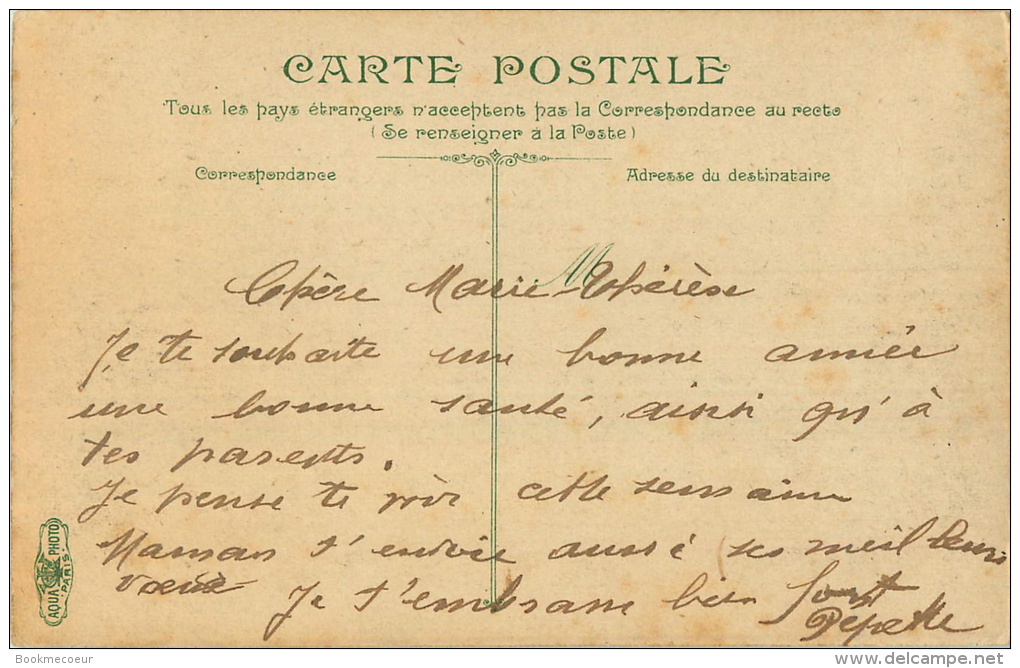 CARTE POSTALE
Tous les pays étrangers n'acceptent pas la Correspondance au recto
(Se renseigner à la Poste)
Correspondance
Adresse du destinataire
Chère Marie Thérèse
Je te souhaite une bonne année
une bonne santé, ainsi qu'à
tes parents.
Je pense te voir cette semaine
Maman t'envoie aussi ses meilleurs
vœux
Je t'embrasse bien fort
Pépette
AQUA PHOTO
PARIS
Bookmecoeur
www.delcampe.net